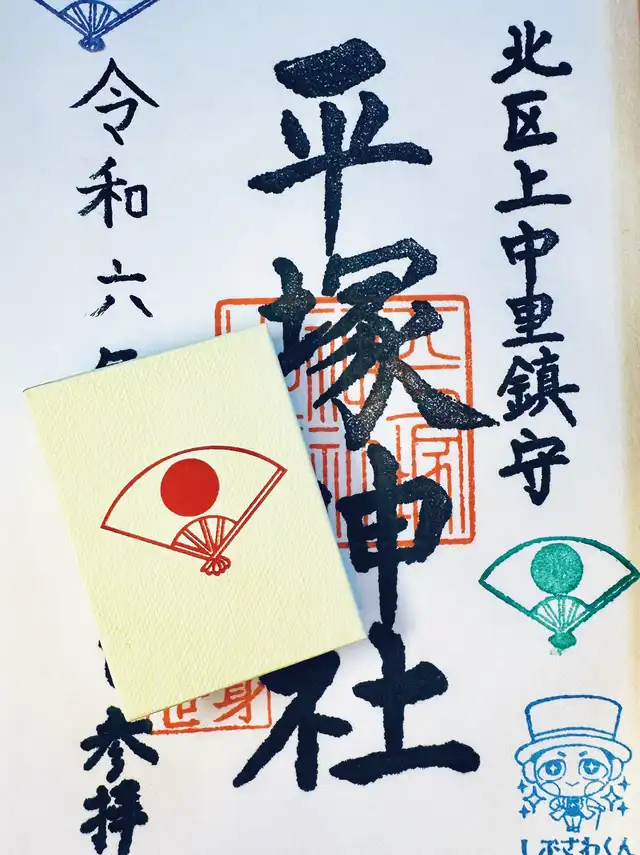 北区上中里鎮守
平塚神社
令和六
参拝
しぶさわくん